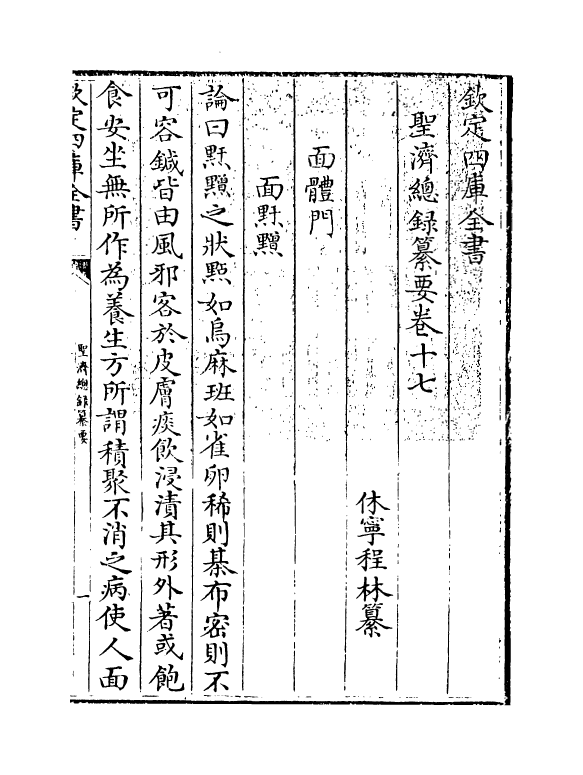 欽定四庫全書
聖濟總録纂要卷十七
休寧程林纂
面體門
面䵟䵳
論曰䵟䵳之狀㸃如烏麻班如雀卵稀則棊布密則不
可容鍼皆由風邪客於皮膚痰飲浸漬其形外著或飽
食安坐無所作為養生方所謂積聚不消之病使人面
欽定四庫全書
聖濟總録纂要
一